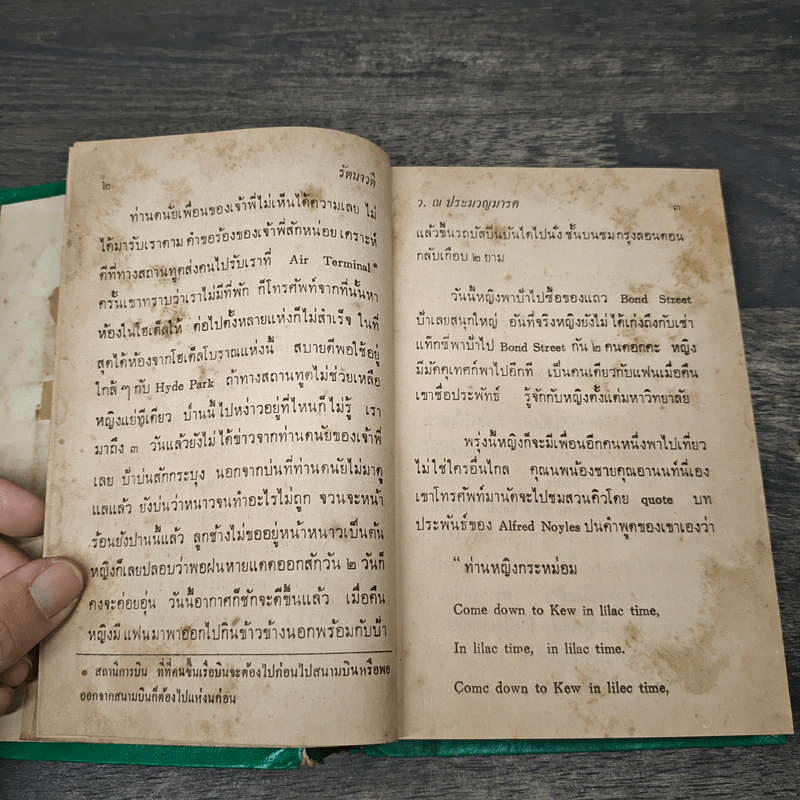 ๒
รัตนาวดี
ท่านดนัยเพื่อนของเจ้าพี่ไม่เห็นได้ความเลย ไม่
ได้มารับเราตาม คำขอร้องของเจ้าพี่สักหน่อย เคราะห์
ดีที่ทางสถานทูตส่งคนไปรับเราที่ Air Terminal*
ครั้นเขาทราบว่าเราไม่มีที่พัก ก็โทรศัพท์จากที่นั้นหา
ห้องในโฮเต็ลให้ ต่อไปตั้งหลายแห่งก็ไม่สำเร็จ ในที่
สุดได้ห้องจากโฮเต็ลโบราณแห่งนี้ สบายดีพอใช้อยู่
ใกล้ ๆ กับ Hyde Park ถ้าทางสถานทูตไม่ช่วยเหลือ
หญิงแย่ทีเดียว ป่านนี้ไปหง่าวอยู่ที่ไหนก็ไม่รู้ เรา
มาถึง ๓ วันแล้วยังไม่ได้ข่าวจากท่านดนัยของเจ้าพี่
เลย ป้าบ่นสักกระบุง นอกจากบ่นที่ท่านดนัยไม่มาดู
แลแล้ว ยังบ่นว่าหนาวจนทำอะไรไม่ถูก จวนจะหน้า
ร้อนยังปานนี้แล้ว ลูกช้างไม่ขออยู่หน้าหนาวเป็นต้น
หญิงก็เลยปลอบว่าพอฝนหายแดดออกสักวัน ๒ วันก็
คงจะค่อยอุ่น วันนี้อากาศก็ชักจะดีขึ้นแล้ว เมื่อคืน
หญิงมีแฟนมาพาออกไปกินข้าวข้างนอกพร้อมกับป้า
๑ สถานีการบิน ที่ที่คนขึ้นเรือบินจะต้องไปก่อนไปสนามบินหรือพอ
ออกจากสนามบินก็ต้องไปแห่งนก่อน
ว. ณ ประมวญมารค
๓
แล้วขึ้นรถบัสปีนบันไดไปนั่ง ชั้นบนชมกรุงลอนดอน
กลับเกือบ ๒ ยาม
วันนี้หญิงพาป้าไปซื้อของแถว Bond Street
ป้าเลยสนุกใหญ่ อันที่จริงหญิงยังไม่ได้เก่งถึงกับเช่า
แท๊กซี่พาป้าไป Bond Street กัน ๒ คนดอกคะ หญิง
มีมัคคุเทศก์พาไปอีกที เป็นคนเดียวกับแฟนเมื่อคืน
เขาชื่อประพัทธ์ รู้จักกับหญิงตั้งแต่มหาวิทยาลัย
พรุ่งนี้หญิงก็จะมีเพื่อนอีกคนหนึ่งพาไปเที่ยว
ไม่ใช่ใครอื่นไกล คุณนพน้องชายคุณอานนท์นี่เอง
เขาโทรศัพท์มานัดจะไปชมสวนคิวโดย quote บท
ประพันธ์ของ Alfred Noyles ปนคำพูดของเขาเองว่า
“ ท่านหญิงกระหม่อม
Come down to Kew in lilac time,
In lilac time, in lilac time.
Come down to Kew in lilec time,